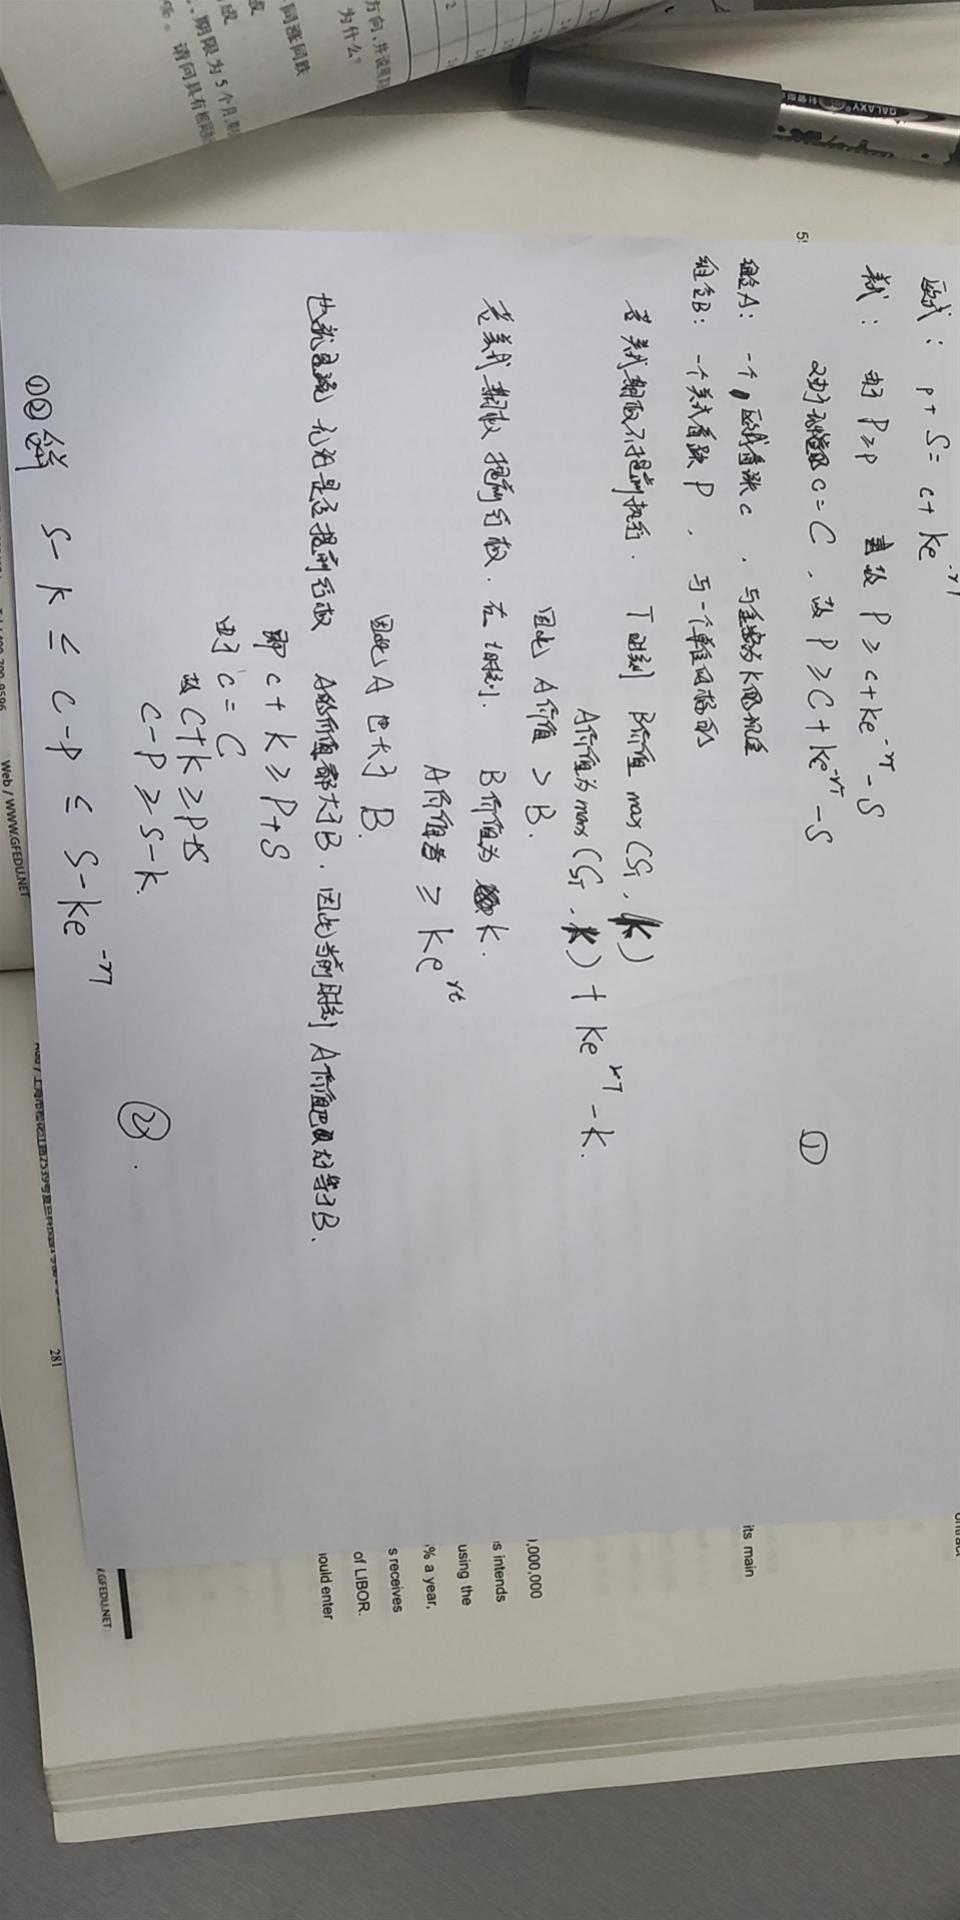 欧式： p + S = c + Ke^-rT
美式： 由于 P ≥ p 故 P ≥ c + Ke^-rT - S
又由于 c = C , 故 P ≥ C + Ke^-rT - S ①
组合A: 一个欧式看涨 c , 与金额为K的现金
组合B: 一个美式看跌 P , 与一个单位的标的
若美式期权不提前执行. T时刻 B价值 max(ST, K)
A价值为max(ST, K) + Ke^rT - K.
因此 A价值 > B.
若美式期权提前行权. 在t时刻. B价值为 K.
A价值 ≥ Ke^rt
因此 A也大于B.
也就是说 无论是否提前行权 A的价值都大于B. 因此当前时刻A价值也应等于B.
即 c + K ≥ P + S
由于 c = C
故 C + K ≥ P + S
C - P ≥ S - K. ② .
①② S - K ≤ C - P ≤ S - Ke^-rT
方向,并说明
为什么?
同涨同跌
成
, 期限为5个月,
。请问具有相同
GALAXY
its main
1,000,000
is intends
using the
% a year,
s receives
of LIBOR.
would enter
.GFEDU.NET
Web / WWW.GFEDU.NET
281